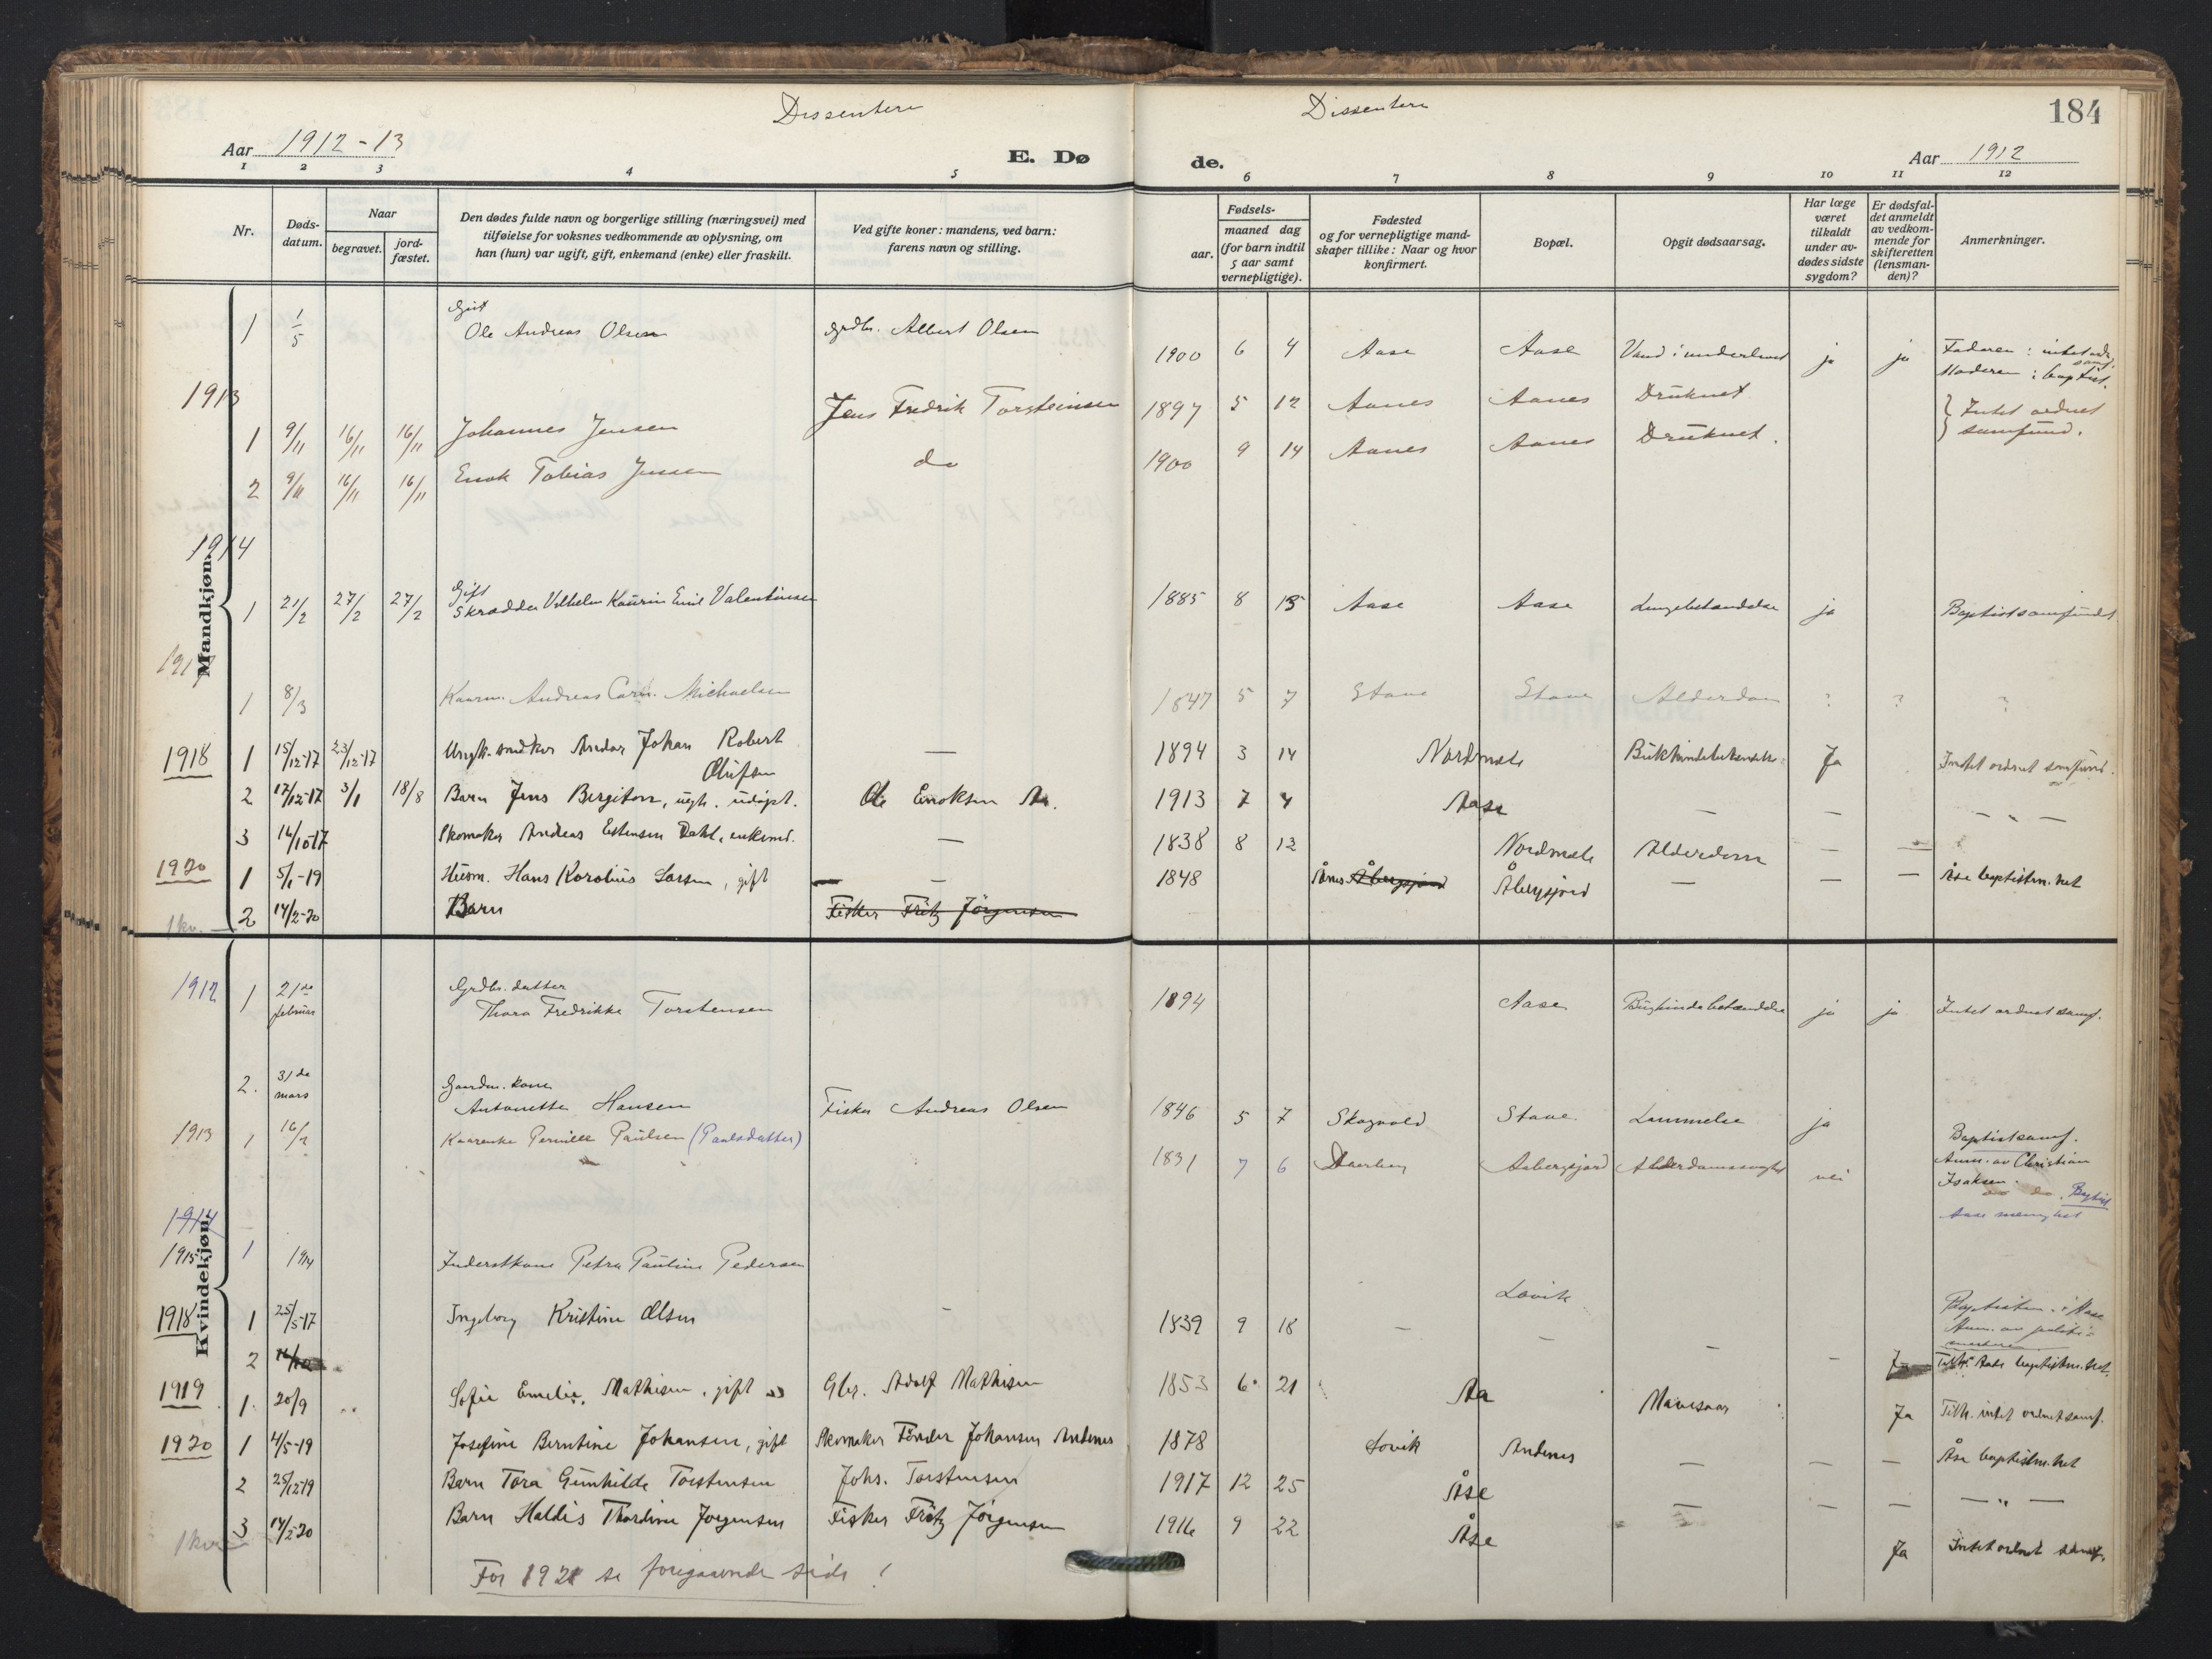 Dissentere
Dissentere
184
Aar 1912-13
E. Dø
de.
Aar 1912
1 2 3 4 5 6 7 8 9 10 11 12
Nr.
Døds-
datum.
Naar
begravet.
jord-
fæstet.
Den dødes fulde navn og borgerlige stilling (næringsvei) med
tilføielse for voksnes vedkommende av oplysning, om
han (hun) var ugift, gift, enkemand (enke) eller fraskilt.
Ved gifte koner: mandens, ved barn:
farens navn og stilling.
Fødsels-
aar.
maaned dag
(for barn indtil
5 aar samt
vernepligtige).
Fødested
og for vernepligtige mand-
skaper tillike: Naar og hvor
konfirmert.
Bopæl.
Opgit dødsaarsag.
Har læge
været
tilkaldt
under av-
dødes sidste
sygdom?
Er dødsfal-
det anmeldt
av vedkom-
mende for
skifteretten
(lensman-
den)?
Anmerkninger.
Mandkjøn.
1 1/5 Ole Andreas Olsen Grdbr. Albert Olsen 1900 6 4 Aase Aase Vand i underlivet ja ja Faderen: intet ordn. samf.
Moderen: baptist.
1913
1 9/11 16/11 16/11 Johannes Jensen Jens Fredrik Torsteinsen 1897 5 12 Aanes Aanes Druknet } Intet ordnet
2 9/11 16/11 16/11 Enok Tobias Jensen do 1900 9 14 Aanes Aanes Druknet. } samfund.
1914
Gift
1 21/2 27/2 27/2 Skrædder Vilhelm Kaurin Emil Valentinsen 1885 8 13 Aase Aase Lungebetændelse ja Baptistsamfundet
1917
1 8/3 Kaarm. Andreas Michaelsen 1847 5 7 Stave Stave Alderdom ? ? ?
1918 1 15/12-17 23/12-17 Johan Robert
Olufsen — 1894 3 14 Nordmela Ja Intet ordnet samfund.
2 17/12-17 3/1 18/8 Barn Jens Bergiton, Ole Enoksen Aa. 1913 7 4 Aase — — — " —
3 16/10-17 Skomaker Andreas Estensen Dahl, enkemd. — 1838 8 12 Nordmela Alderdom — —
1920 1 5/1-19 Husm. Hans Karolius Larsen, gift — 1848 Ånes Åbergsjord Åbergsjord — — — Åse baptistm.het
1kv. 2 14/2-20 Barn Fisker Fritz Jörgensen
Kvindekjøn.
1912 1 21de
februar Grdbr. datter
Thora Fredrikke Torstensen 1894 Aase ja ja Intet ordnet samf.
2. 31de
mars Gaardm. kone
Antonette Hansen Fisker Andreas Olsen 1846 5 7 Skogvold Stave Lammelse ja Baptistsamf.
1913 1 16/2 Kaarenke Pernille Paulsen (Paulsdatter) 1831 7 6 Aabergsjord Alderdomssvaghed nei Anm. av Christian
Isaksen. do. Baptist
Aase menighet
1914
1915 1 Inderstkone Petra Pauline Pedersen Lovik Baptistm. i Aase
Anm. av politi-
mesteren
1918 1 25/5-17 Ingeborg Kristine Olsen — 1839 9 18 — — — — Ja Tilh. Aase baptistm.het.
2
1919 1. 20/9 Sofie Emilie Mathisen, gift Gbr. Adolf Mathisen 1853 6 21 Aa Mavesaar Ja Tilh. intet ordnet samf.
1920 1 4/5-19 Josefine Berntine Johansen, gift Skomaker Johansen Andenes 1878 Lovik Andenes — — — Åse baptistm.het
2 25/12-19 Barn Tora Gunhilde Torstensen Johs. Torstensen 1917 12 25 Åse — — — — " —
1kv. 3 14/2-20 Barn Haldis Thordine Jorgensen Fisker Fritz Jörgensen 1916 9 22 Åse Ja Intet ordnet samf.
For 1921 se foregaaende side!